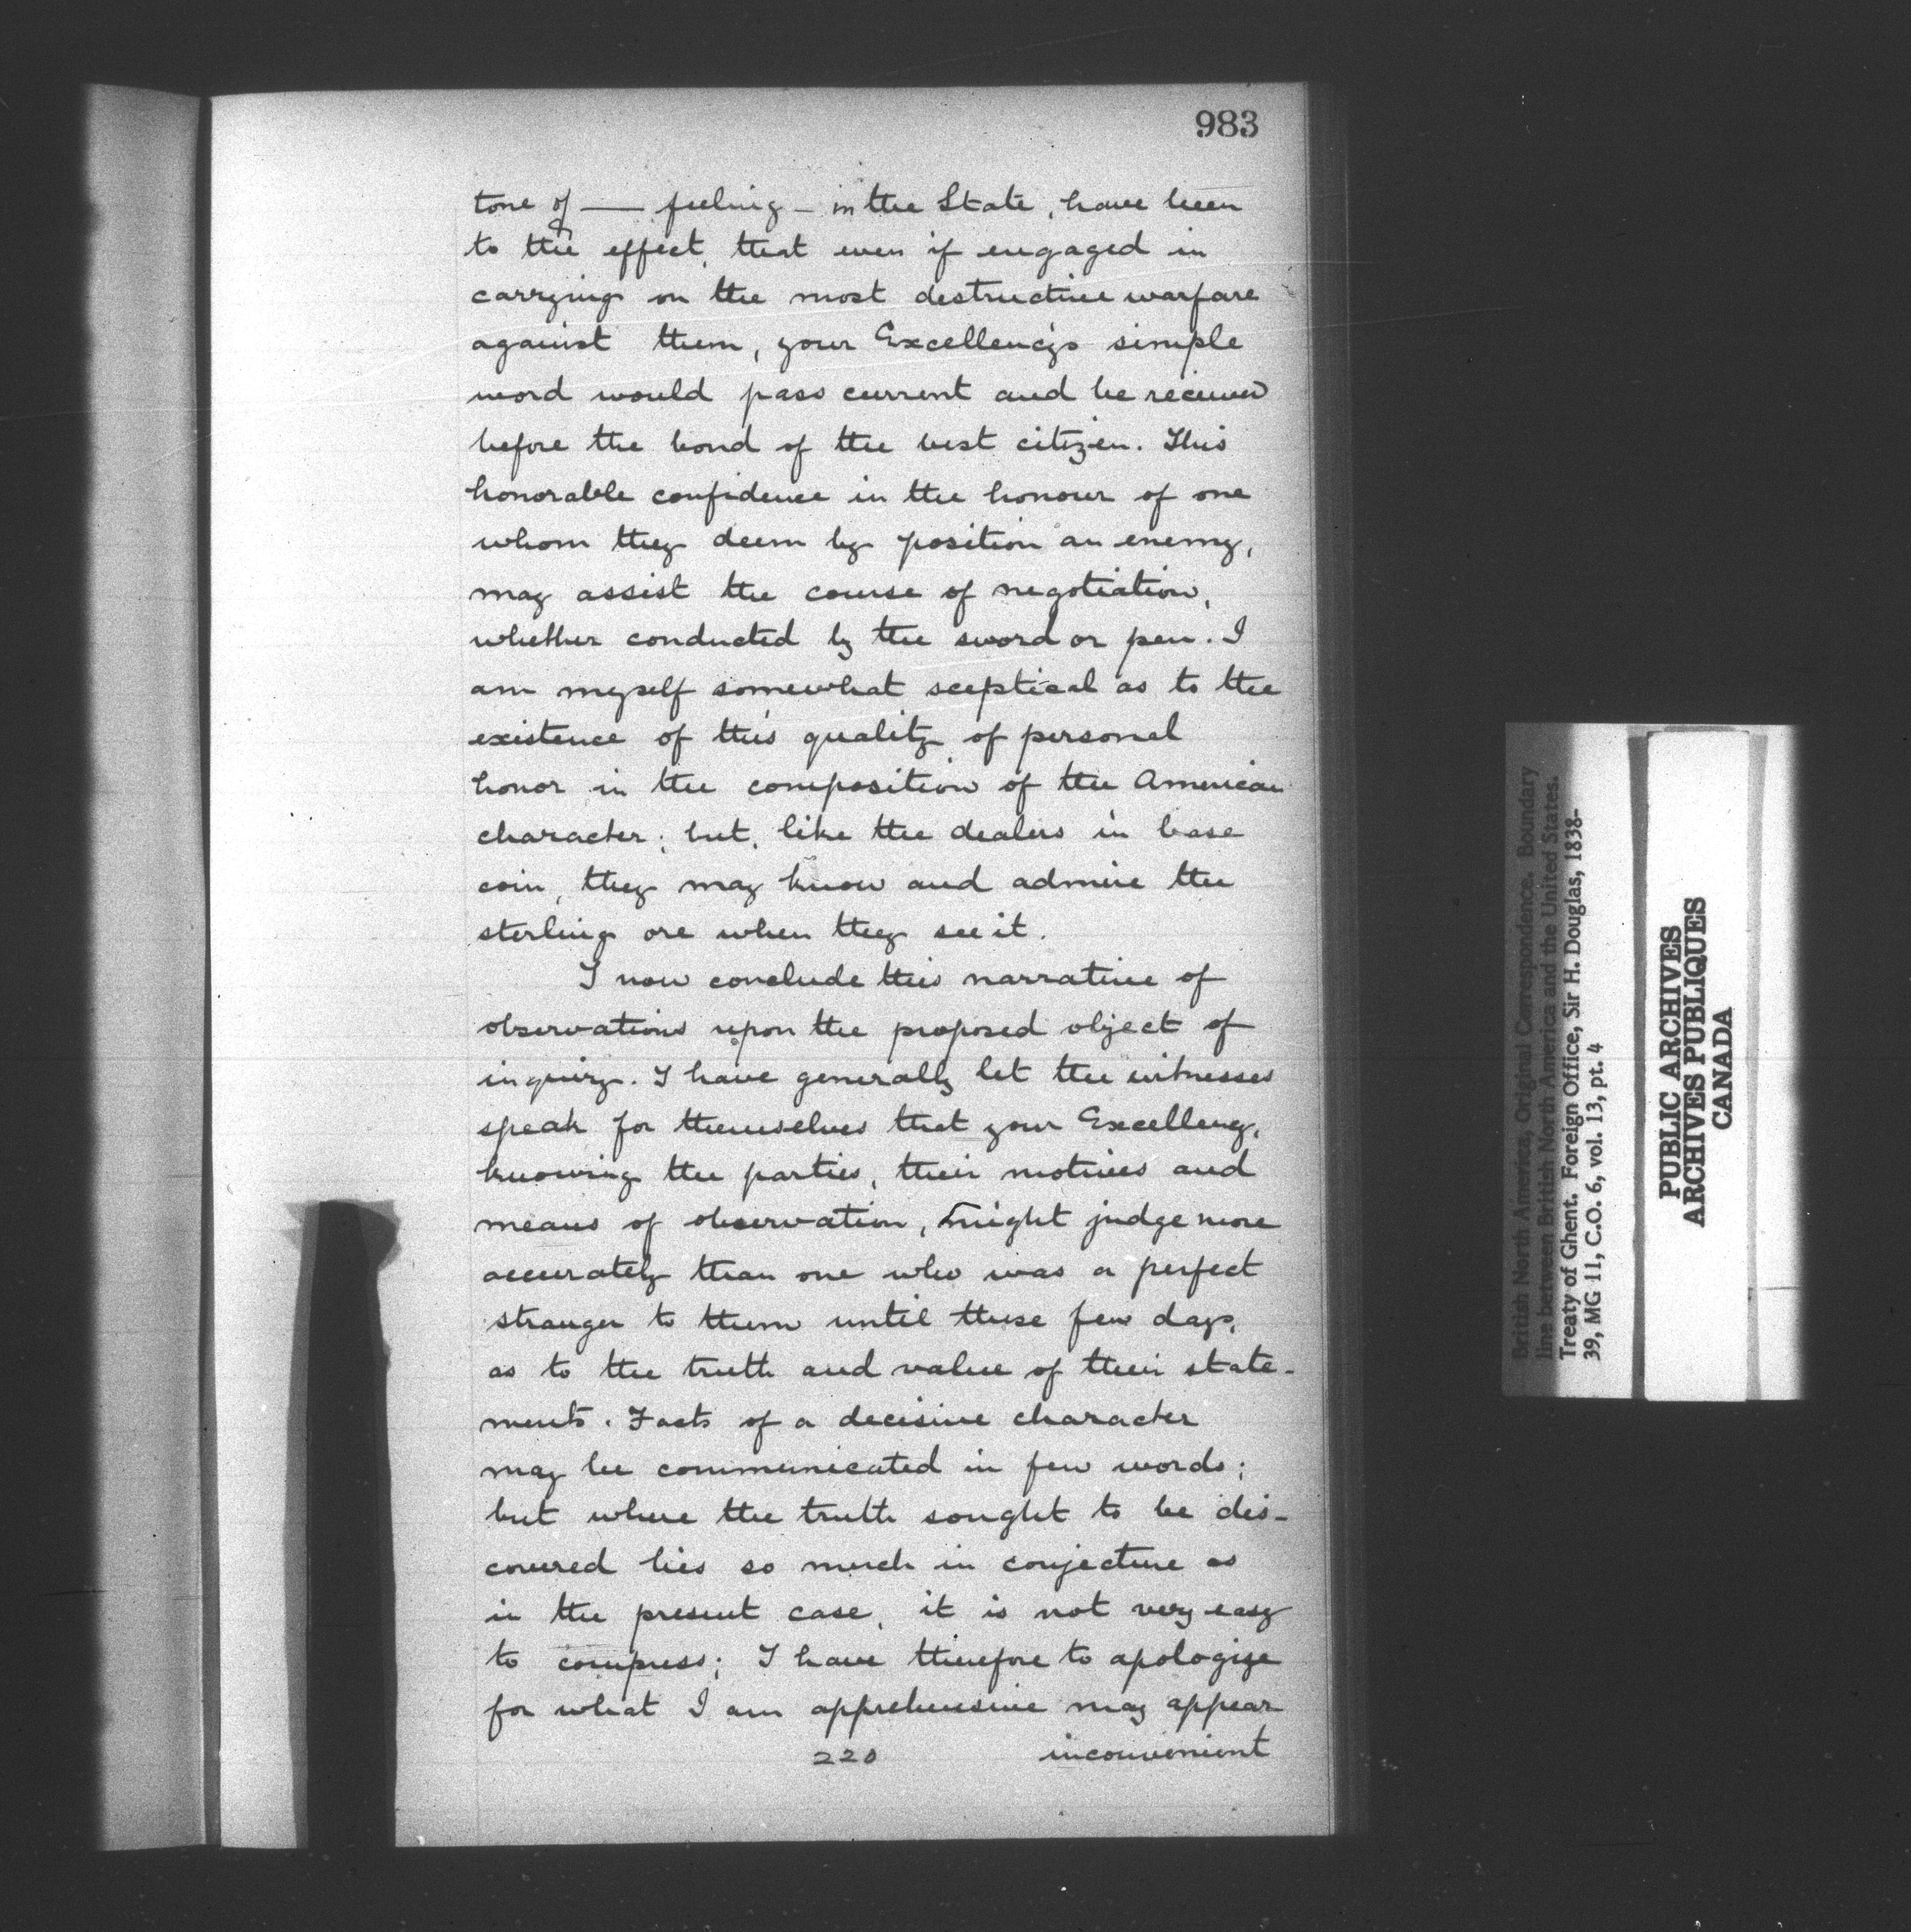 983
tone of — feeling — in the State, have been
to the effect, that even if engaged in
carrying on the most destructive warfare
against them, your Excellency's simple
word would pass current and be received
before the bond of the best citizen. This
honorable confidence in the honour of one
whom they deem by position an enemy,
may assist the course of negotiation,
whether conducted by the sword or pen. I
am myself somewhat sceptical as to the
existence of this quality of personal
honor in the composition of the American
character; but, like the dealers in base
coin, they may know and admire the
sterling ore when they see it.
I now conclude this narrative of
observations upon the proposed object of
inquiry. I have generally let the witnesses
speak for themselves that your Excellency,
knowing the parties, their motives and
means of observation, might judge more
accurately than one who was a perfect
stranger to them until these few days,
as to the truth and value of their state-
ments. Facts of a decisive character
may be communicated in few words;
but where the truth sought to be dis-
covered lies so much in conjecture as
in the present case, it is not very easy
to compress; I have therefore to apologize
for what I am apprehensive may appear
220 inconvenient
British North America, Original Correspondence. Boundary
line between British North America and the United States.
Treaty of Ghent. Foreign Office, Sir H. Douglas, 1838-
39, MG 11, C.O. 6, vol. 13, pt. 4
PUBLIC ARCHIVES
ARCHIVES PUBLIQUES
CANADA